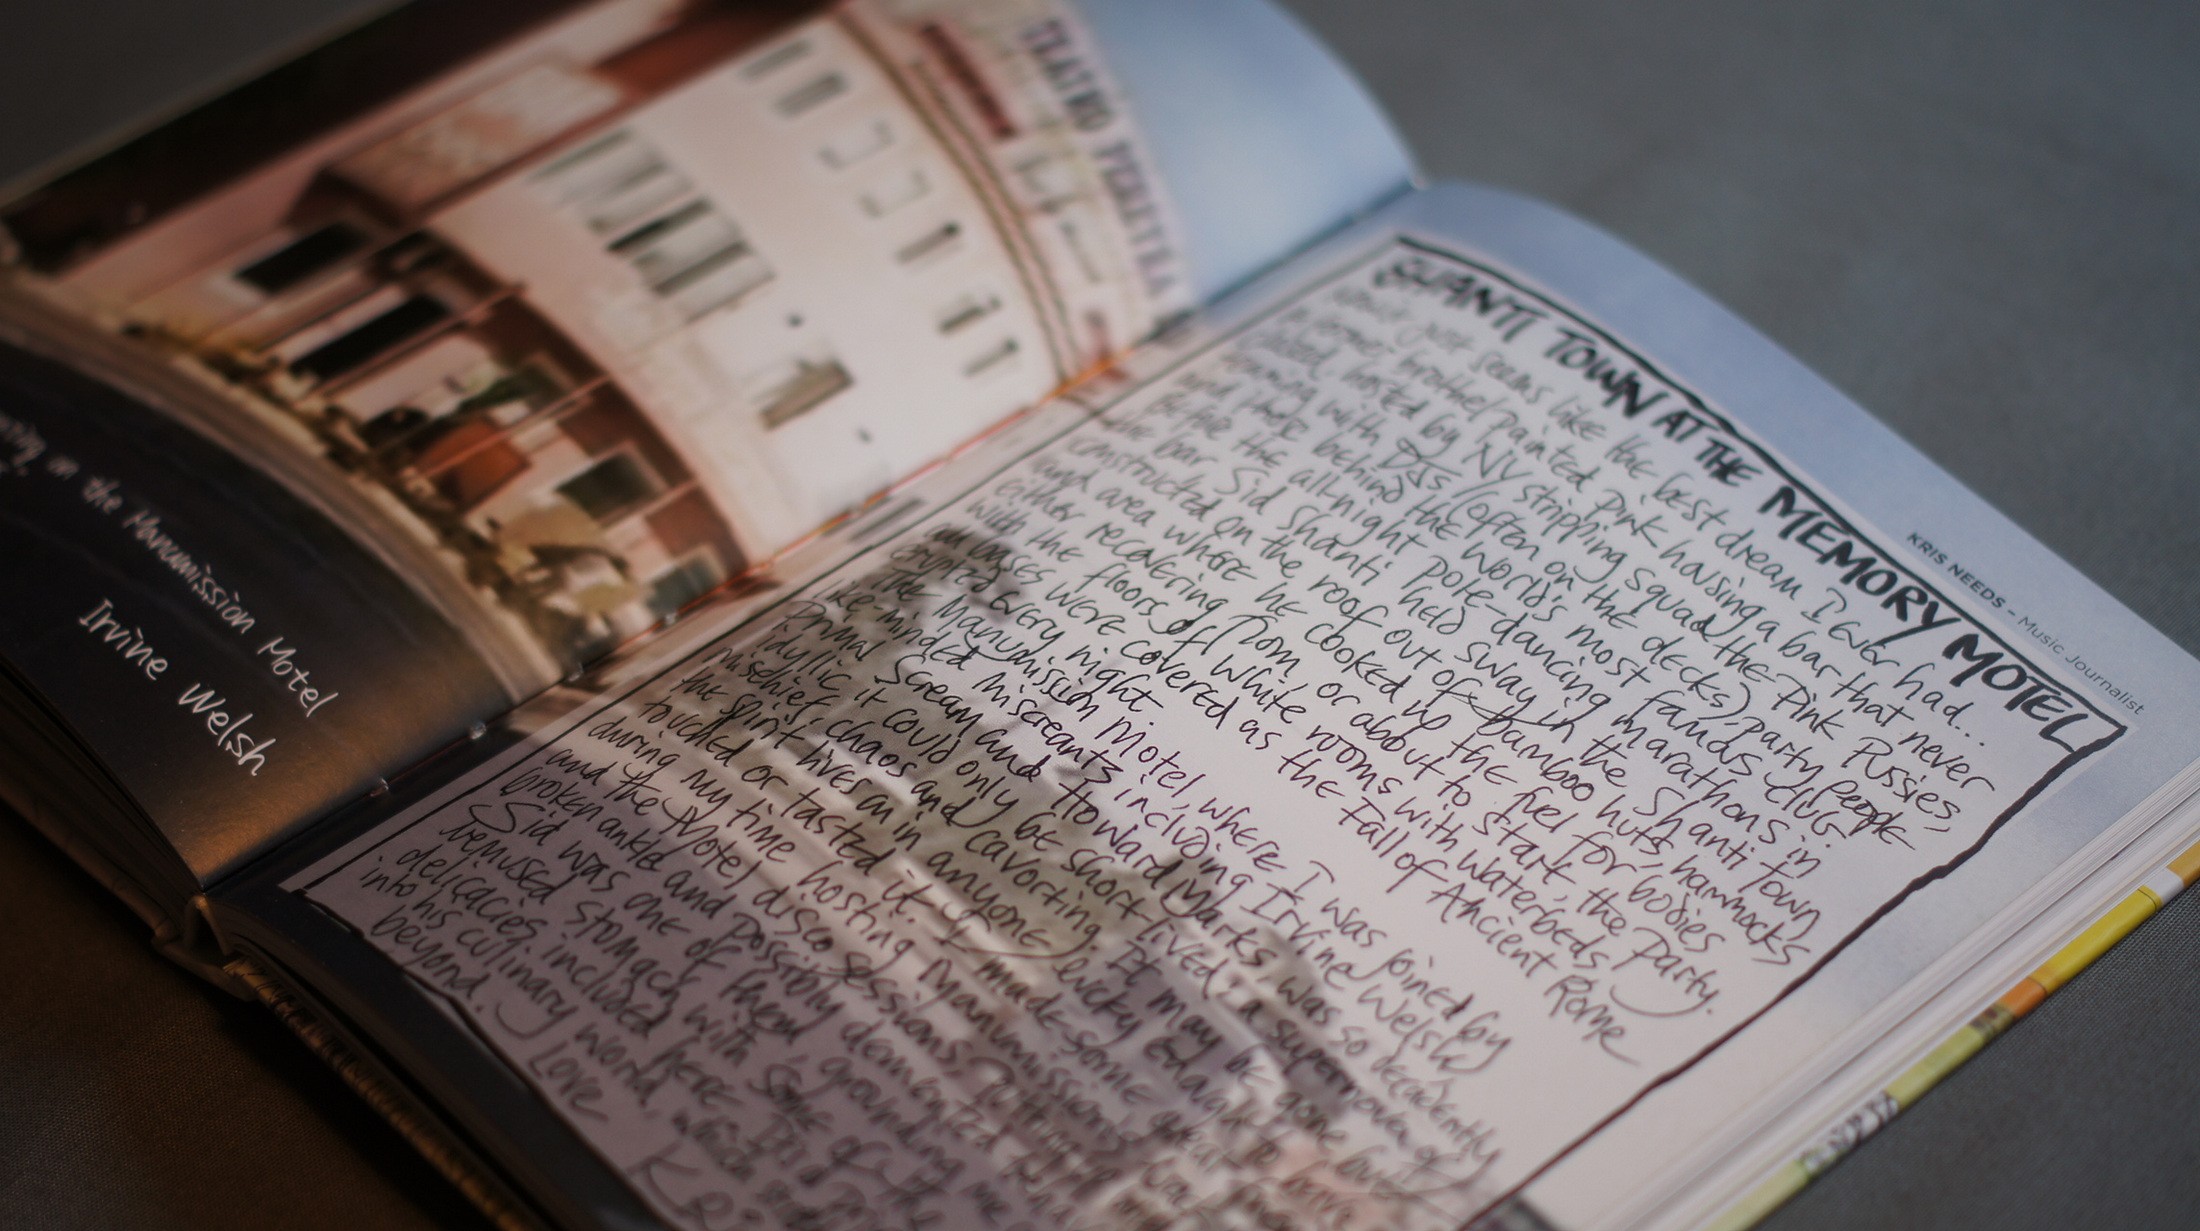 TEATRO PEREYRA
in the Manumission Motel
Irvine Welsh
KRIS NEEDS – Music Journalist
SHANTI TOWN AT THE MEMORY MOTEL
just seems like the best dream I ever had...
A former brothel painted Pink housing a bar that never
closed, hosted by NY stripping squad the Pink Pussies,
running with DJs (often on the decks), Party People
and those behind the World's most famous club
before the all-night pole-dancing marathons in
the bar. Sid Shanti held sway in the Shanti Town
constructed on the roof out of bamboo huts, hammocks
and area where he cooked up the fuel for bodies
either recovering from, or about to start, the Party.
With the floors of white rooms with waterbeds
oases were covered as the Fall of Ancient Rome
erupted every night.
The Manumission Motel, where I was joined by
like-minded miscreants including Irvine Welsh,
Primal Scream and Howard Marks, was so decadently
idyllic it could only be short-lived; a supernova of
mischief, chaos and cavorting. It may be gone but
the spirit lives on in anyone lucky enough to have
touched or tasted it. I made some great
during my time hosting Manumission's
and the Motel disco sessions.
broken ankle and possibly demented
Sid was one of them, grounding
bemused stomach with some of the
delicacies included here.
into his culinary world, which
beyond.
Love